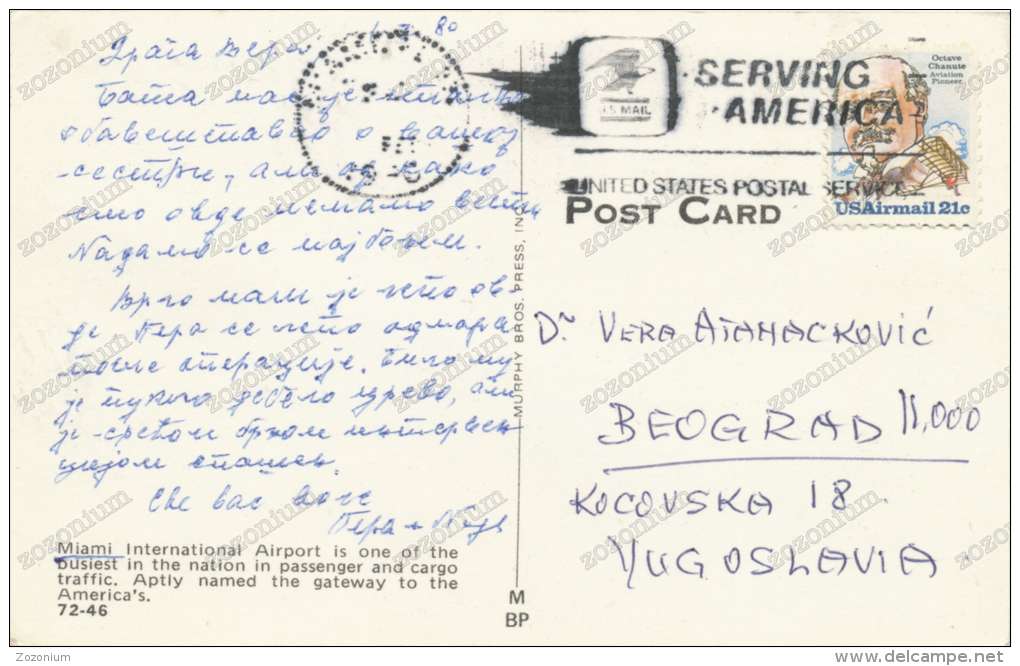 80
Драга Вера,
Баша нас је
обавештавао о вашој
сестри, али од како
смо овде немамо вести
Надамо се најбољем.
Врло нам је лепо ов-
де. Пера се лепо одмара
после операције. Било му
је пукло дебело црево, али
је срећом брзом интервен-
цијом спашен.
Све вас воле
Пера и
Miami International Airport is one of the
busiest in the nation in passenger and cargo
traffic. Aptly named the gateway to the
America's.
72-46
MURPHY BROS. PRESS, INC.
M
BP
U.S. MAIL
SERVING
AMERICA
UNITED STATES POSTAL SERVICE
Octave
Chanute
Aviation
Pioneer
USAirmail 21c
POST CARD
Dr VERA ATAHACKOVIĆ
BEOGRAD 11,000
KOCOVSKA 18
YUGOSLAVIA
zozonium
Zozonium
http://www.delcampe.net